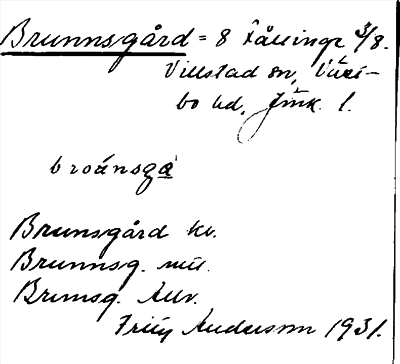 Brunnsgård = 8 Kållinge 3/8.
Villstad sn, Väst-
bo hd, Jönk. l.
broánsgá
Brunsgård kv.
Brunnsg. mtl.
Brunsg. Allv.
Fritz Anderson 1931.